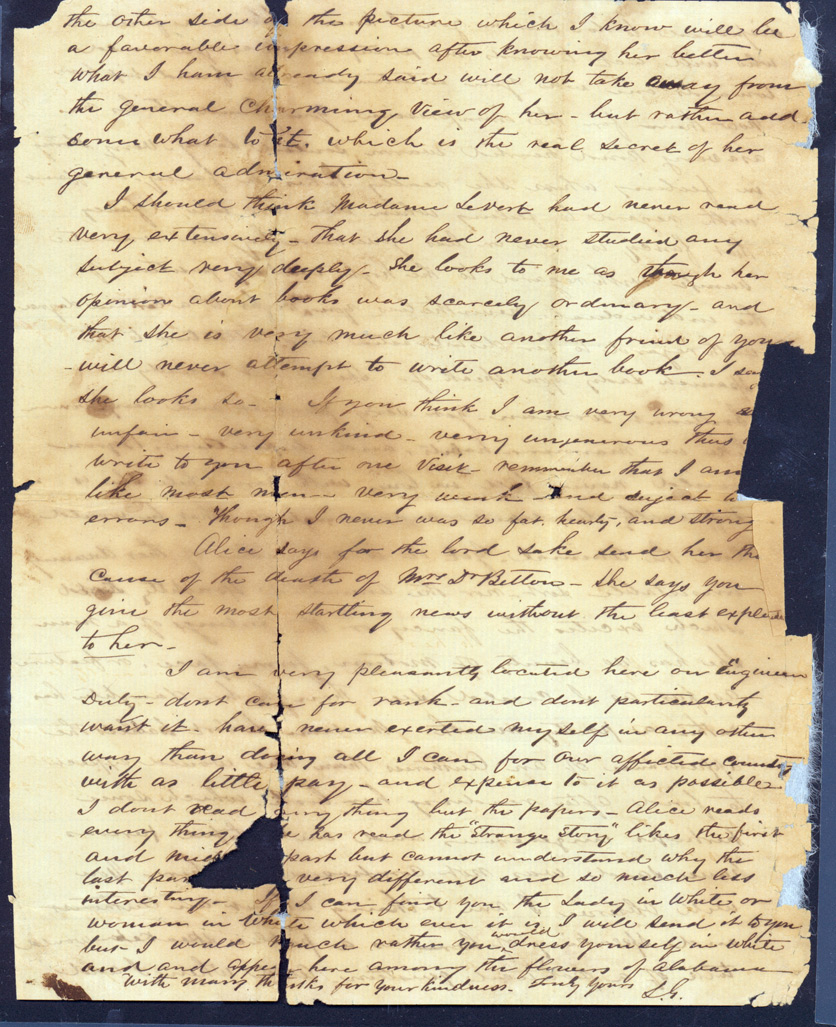 the other side of the picture which I know will be
a favorable impression after knowing her better
what I have already said will not take away from
the general charming view of her - but rather add
some what to it. which is the real secret of her
general admiration -
I should think Madame Levert had never read
very extensively - that she had never studied any
subject very deeply - She looks to me as though her
opinion about books was scarcely ordinary - and
that she is very much like another friend of
- will never attempt to write another book. I say
she looks so - If you think I am very wrong
unfair - very unkind - verry ungenerous thus
write to you after one visit - remember that I am
like most men - very weak and subject
errors - Though I never was so fat, hearty, and strong
Alice says for the lord sake send her the
cause of the death of Mrs Dr Betton - She says you
give the most startling news without the least
to her -
I am very pleasantly located here on Engineer
Duty - dont care for rank - and dont particularly
want it - have never exerted myself in any other
way than doing all I can for our afflicted
with as little pay - and expense to it as possible
I dont read anything but the papers - Alice reads
every thing he has read the "Strange Story" likes the first
and mid part but cannot understand why the
last par very different and so much less
interesting - If I can find you the Lady in White or
woman in White which ever it is I will send it to you
but I would much rather you dress yourself in white
and and appear here among the flowers of Alabama
with many thanks for your kindness. Truly yours
L.G.